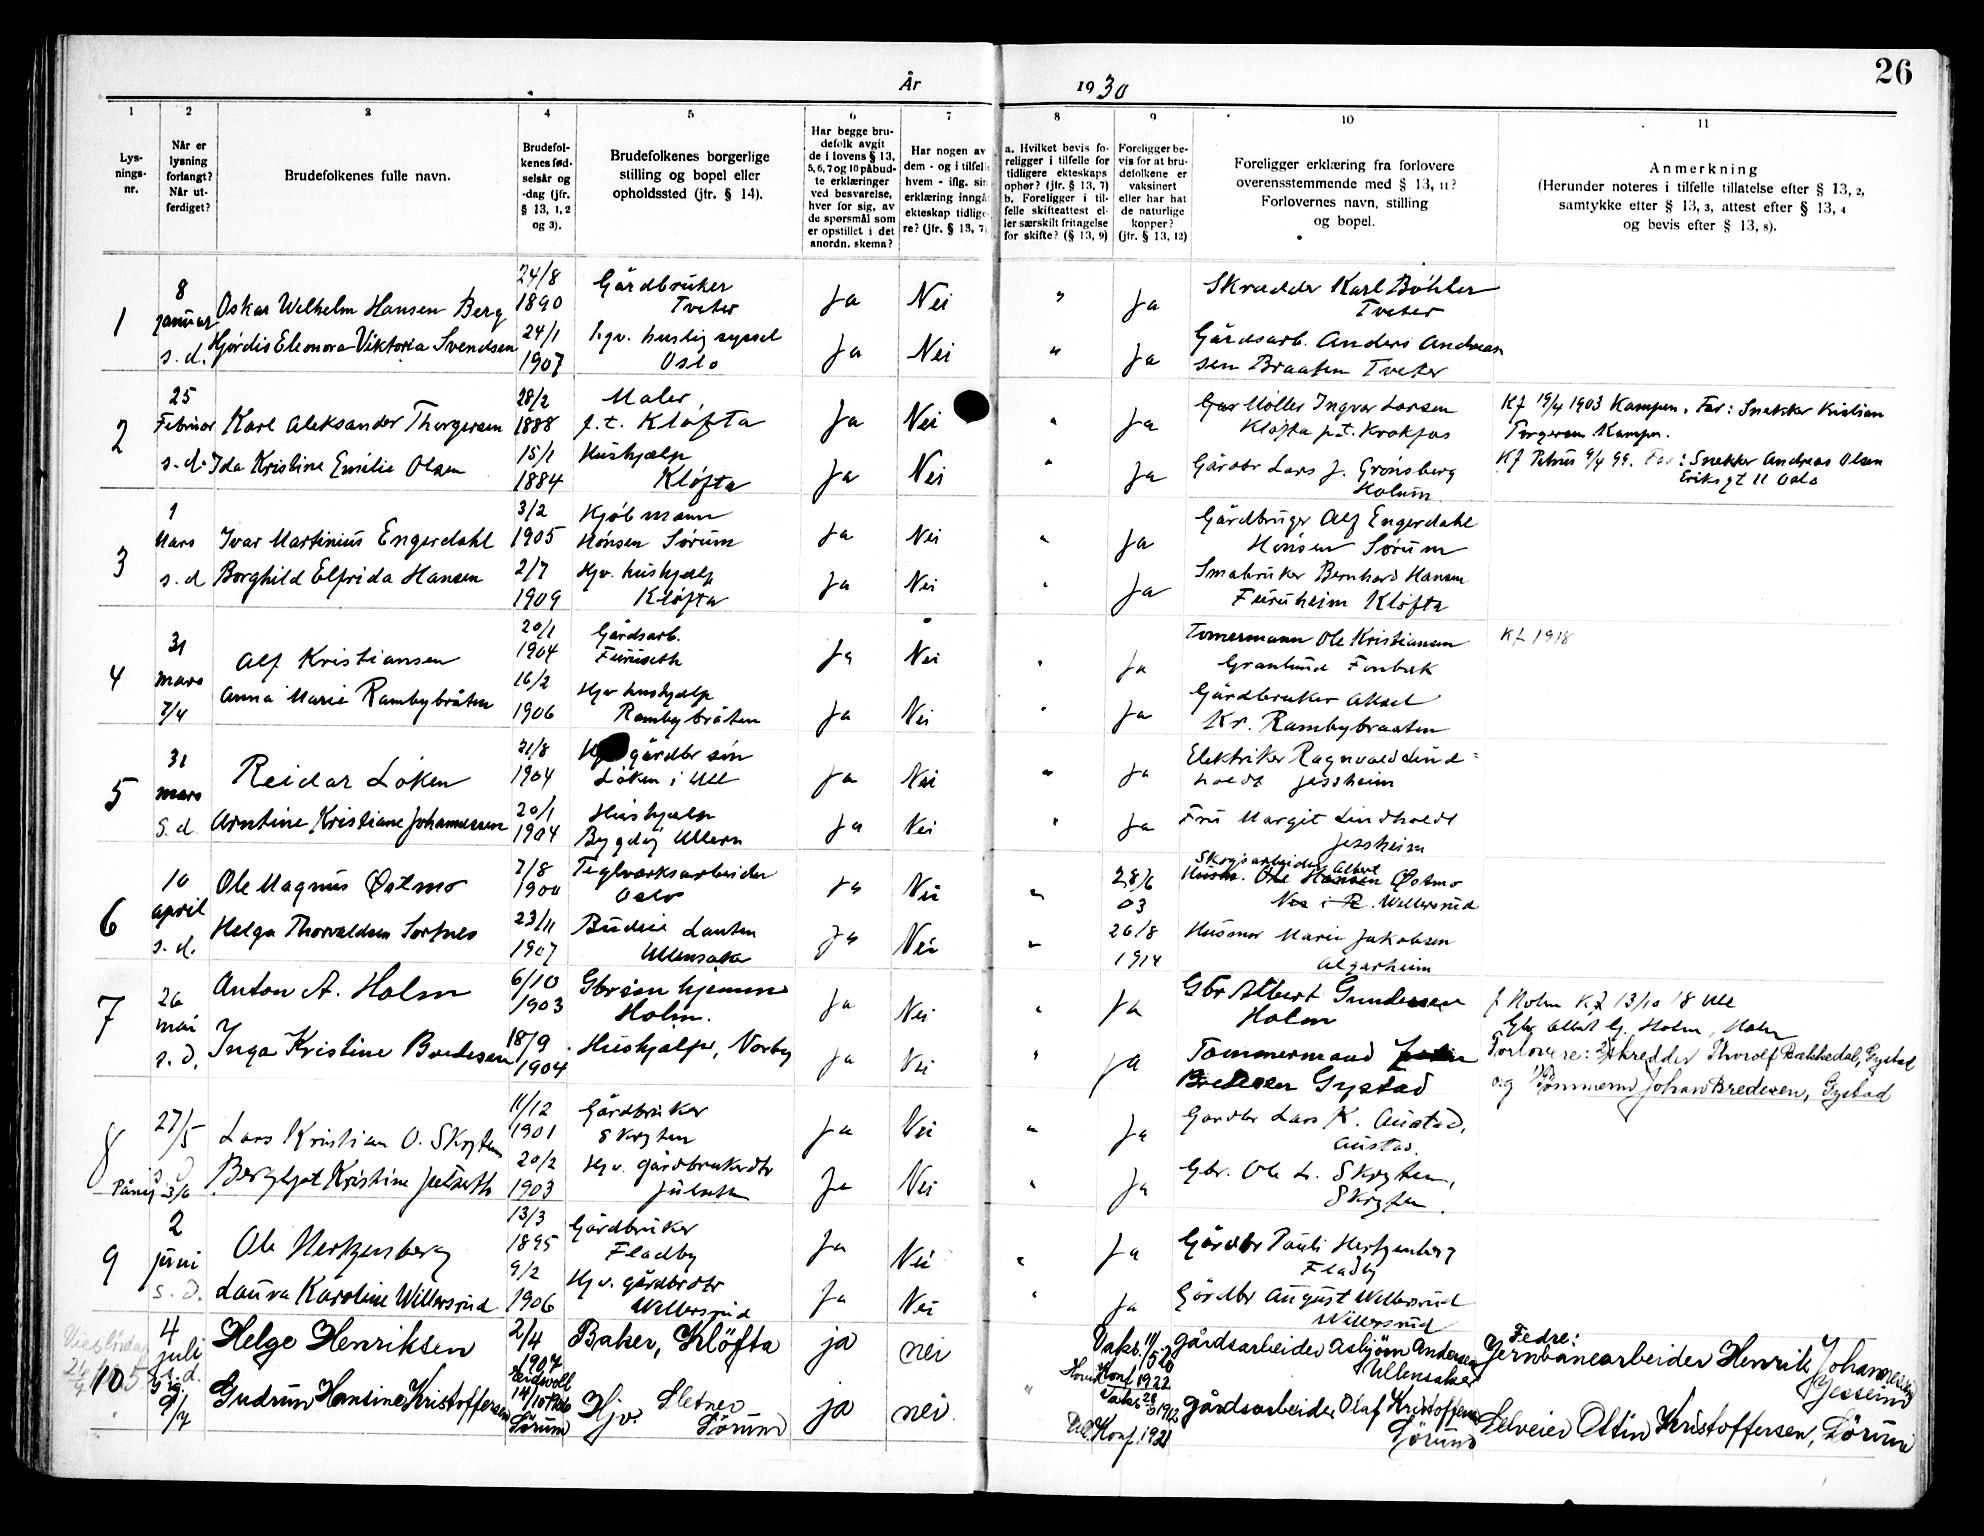 26
År 1930
1 2 3 4 5 6 7 8 9 10 11
Lys-
nings-
nr.
Når er
lysning
forlangt?
Når ut-
ferdiget?
Brudefolkenes fulle navn.
Brudefol-
kenes fød-
selsår og
-dag (jfr.
§ 13, 1, 2
og 3).
Brudefolkenes borgerlige
stilling og bopel eller
opholdssted (jfr. § 14).
Har begge bru-
defolk avgit
de i lovens § 13,
5, 6, 7 og 10 påbud-
te erklæringer
ved besvarelse,
hver for sig, av
de spørsmål som
er opstillet i det
anordn. skema?
Har nogen av
dem - og i tilfelle
hvem - iflg. sin
erklæring inngå
ekteskap tidlige-
re? (jfr. § 13, 7)
a. Hvilket bevis fo-
religger i tilfelle for
tidligere ekteskaps
ophør? (jfr. § 13, 7)
b. Foreligger i til-
felle skifteattest el-
ler særskilt fritagelse
for skifte? (§ 13, 9)
Foreligger be-
vis for at bru-
defolkene er
vaksinert
eller har hat
de naturlige
kopper?
(jfr. § 13, 12)
Foreligger erklæring fra forlovere
overensstemmende med § 13, 11?
Forlovernes navn, stilling
og bopel.
Anmerkning
(Herunder noteres i tilfelle tillatelse efter § 13, 2,
samtykke efter § 13, 3, attest efter § 13, 4
og bevis efter § 13, 8).
1
8
januar
s. d.
Oskar Welhelm Hansen Berg
24/8
1890
Gårdbruker
Tveter
Ja Nei " Ja
Skredder Karl Böhler
Tveter
Hjördis Eleonora Viktoria Svendsen
24/1
1907
hgv. huslig syssel
Oslo
Ja Nei " Ja
Gårdsarb. Anders Andreas
sen Braaten Tveter
2
25
Februar
s. d.
Karl Aleksander Thorgersen
28/2
1888
Maler,
f. t. Kløfta
Ja Nei " Ja
Møller Ingvar Larsen
Kløfta p.t. Krokfos
Kf 19/4 1903 Kampen. Far: Snekker Kristian
Torgersen Kampen.
Ida Kristine Emilie Olsen
15/1
1884
Hushjælp
Kløfta
Ja Nei " Ja
Gårdbr Lars J. Grønsberg
Holum
Kf Petrus 9/4 99. Far: Snekker Andreas Olsen
Eriksgt 11 Oslo
3
1
Mars
s. d
Ivar Martinius Engerdahl
3/2
1905
Kjøbmann
Hønsen Sørum
Ja Nei " Ja
Gårdbruger Alf Engerdahl
Hønsen Sørum
Borghild Elfrida Hansen
2/7
1909
Hjv. hushjælp
Kløfta
Ja Nei " Ja
Småbruker Bernhard Hansen
Furuheim Kløfta
4
31
mars
7/4
Alf Kristiansen
20/1
1904
Gårdsarb.
Furuseth
Ja Nei " Ja
Tømermann Ole Kristiansen
Granlund Fonbæk
Kf 1918
Anna Marie Rambybråten
16/2
1906
Hjv hushjælp
Rambybråten
Ja Nei " Ja
Gårdbruker Aksel
Kr. Rambybraaten
5
31
mars
S. d.
Reidar Løken
31/8
1904
gårdbr søn
Løken i Ull
Ja Nei " Ja
Elektriker Ragnvald Lind-
holdt Jessheim
Arntine Kristiane Johannessen
20/1
1904
Hushjælp
Bygdøy Ullern
Ja Nei " Ja
Fru Margit Lindholdt
Jessheim
6
10
april
s. d.
Ole Magnus Østmo
7/8
1900
Teglverksarbeider
Oslo
Ja Nei "
28/6
03
Skogsarbeider Albert
Husm. Ole Hansen Østmo
Nes i R. Willersrud
Helga Thorvaldsen Sortnes
23/11
1907
Budeie Lauten
Ullensaker
Ja Nei "
26/8
1914
Husmor Marie Jakobsen
Algarheim
7
26
mai
s. d.
Anton A. Holm
6/10
1903
Gbrsøn hjemme
Holm.
Ja Nei " Ja
Gbr Albert Gundersen
Holm
f Holm Kf 13/10 18 Ull
Gbr Albert G. Holm, Holm
Inga Kristine Bredesen
18/9
1904
Hushjælp, Norby
Ja Nei " Ja
Tømmermand
Bredesen Gystad
Forlovere: Skredder Thorolf Bækkedal, Gystad
og Tømmerm Johan Bredesen, Gystad
8
27/5
Lars Kristian O. Skryten
11/12
1901
Gårdbruker
Skryten
Ja Nei " Ja
Gardbr Lars K. Austad,
Austad.
3/6
Bergljot Kristine Julseth
20/2
1903
Hjv. gårdbrukerdtr
Julseth
Ja Nei " Ja
Gbr. Ole L. Skryten,
Skryten.
9
2
juni
s. d.
Ole Herkzensberg
13/3
1895
Gårdbruker
Fladby
Ja Nei " Ja
Gårdbr Pauli Hertzenberg
Fladby
Laura Karoline Willersrud
9/2
1906
Hjv. gårdbrdtr
Willersrud
Ja Nei " Ja
Gårdbr August Willersrud
Willersrud
10
4
juli
s. d.
9/7
Helge Henriksen
2/4
1907
Eidsvoll
Baker, Kløfta
ja nei
Vaks. 11/5 20
Konf 1922
gårdsarbeider Asbjörn Andersen
Ullensaker
Fedre:
Jernbanearbeider Henrik Johannesen
Jesseim
Gudrun Hansine Kristoffersen
14/10 1906
Sörum
Hjv. Sletner
Sörum
ja nei "
Konf. 1921
gårdsarbeider Olaf Kristoffersen
Sörum
Selveier Ottin Kristoffersen, Sörum